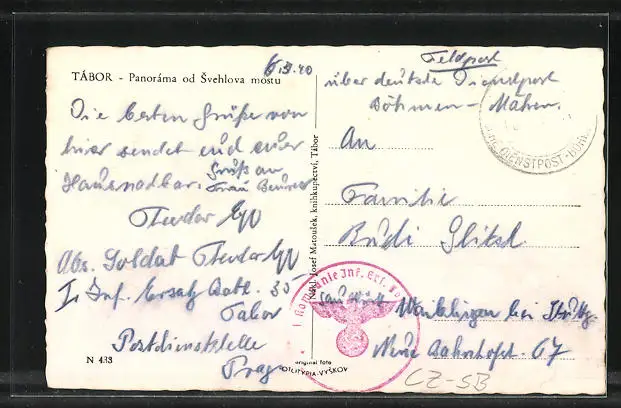 6.3.40
TÁBOR - Panoráma od Švehlova mostu
Die besten Grüße von
hier sendet euch euer
Hausnachbar. Gruß an
Frau Beurer
Theodor
Abs. Soldat Theodor
I. Inf. Ersatz Batl. 35
Tabor
Postdienststelle
Prag
N 438
Nakl. Josef Matoušek, knihkupectví, Tábor
original foto
FOTOTYPIA-VYŠKOV
Feldpost
über deutsche Dienstpost
Böhmen - Mähren.
DIENSTPOST
An
Familie
Kompanie Inf. Ers.
Waiblingen bei Stuttg.
Neue Bahnhofst. 67
CZ-SB